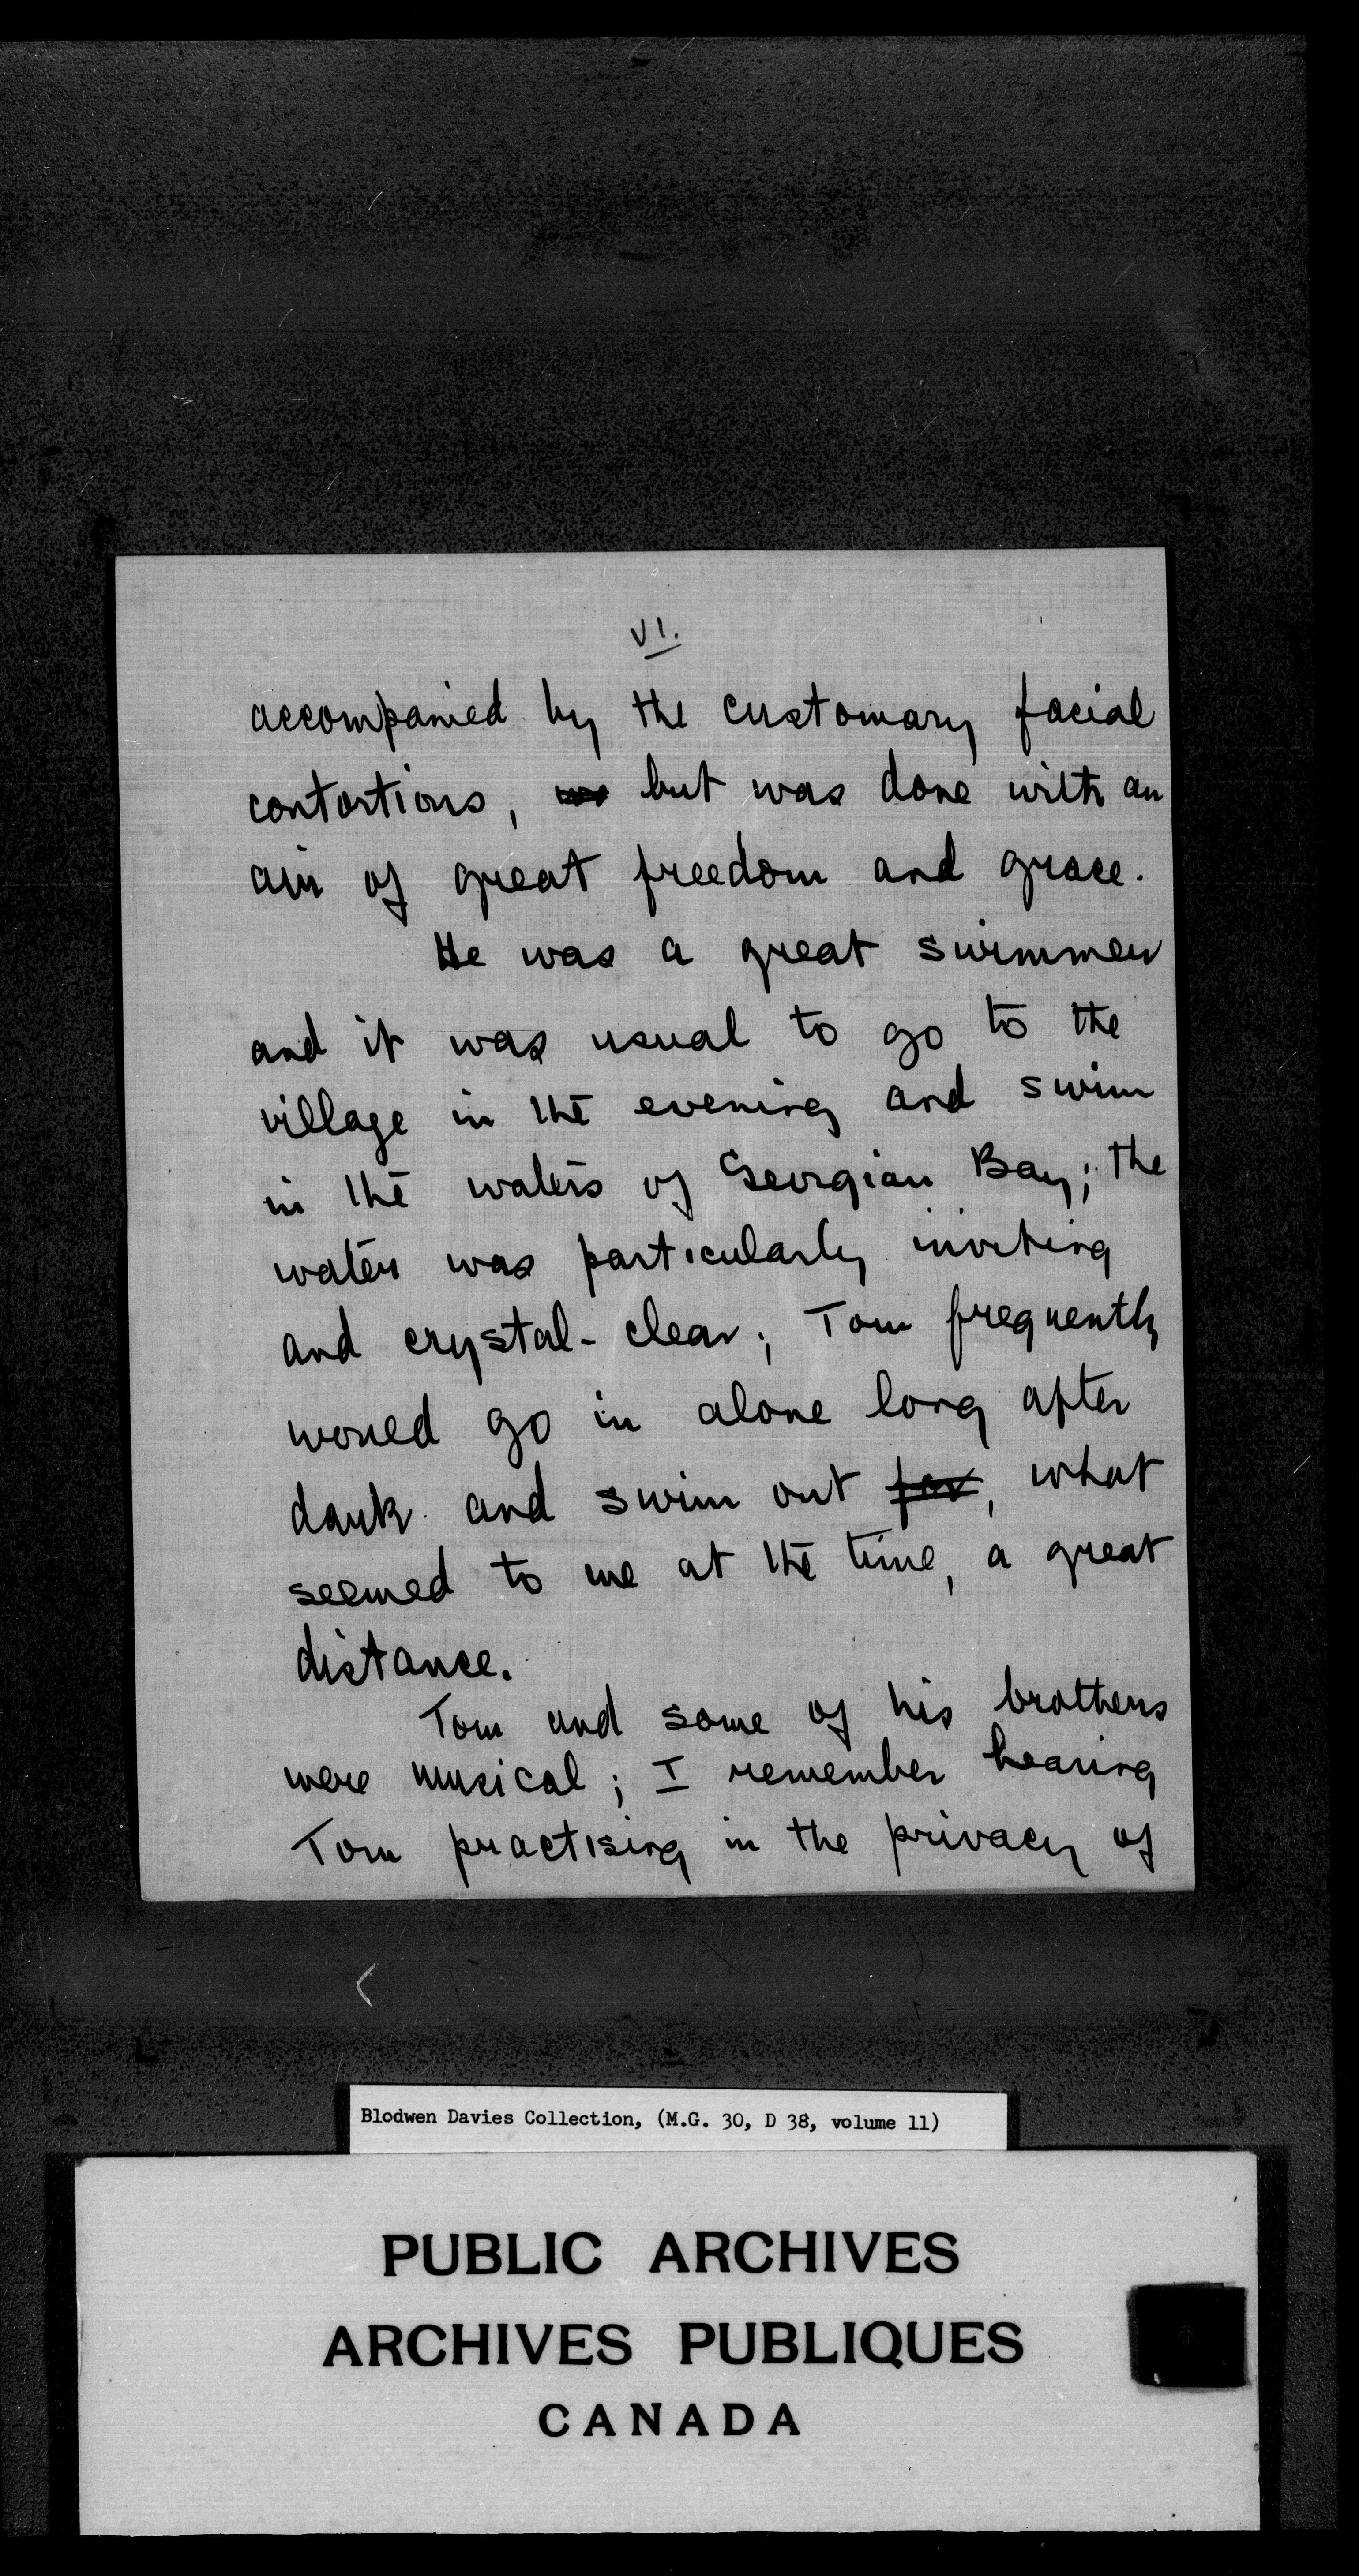 VI.
accompanied by the customary facial
contortions, was but was done with an
air of great freedom and grace.
He was a great swimmer
and it was usual to go to the
village in the evening and swim
in the waters of Georgian Bay; the
water was particularly inviting
and crystal-clear; Tom frequently
would go in alone long after
dark and swim out far, what
seemed to me at the time, a great
distance.
Tom and some of his brothers
were musical; I remember hearing
Tom practising in the privacy of
Blodwen Davies Collection, (M.G. 30, D 38, volume 11)
PUBLIC ARCHIVES
ARCHIVES PUBLIQUES
CANADA